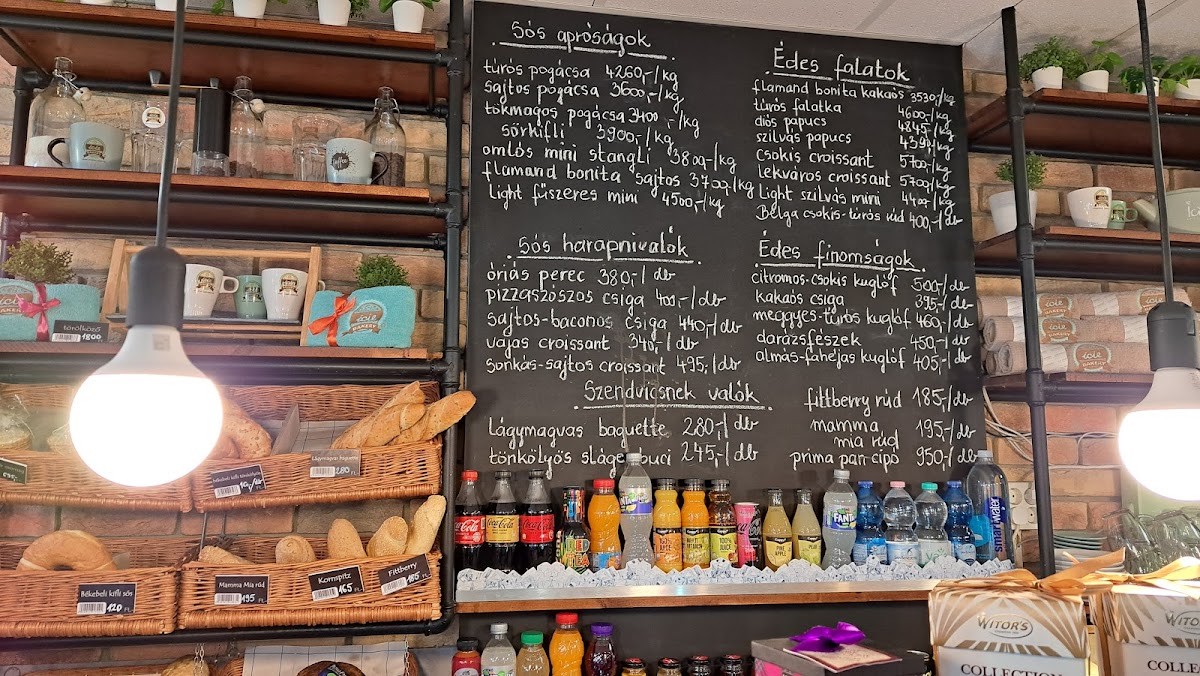 Sós apróságok
túrós pogácsa 4260,-/kg
sajtos pogácsa 3600,-/kg
tökmagos pogácsa 3400,-/kg
sörkifli 3900,-/kg
omlós mini stangli 3800,-/kg
flamand bonita sajtos 3700,-/kg
light fűszeres mini 4500,-/kg
Sós harapnivalók
óriás perec 380,-/db
pizzaszószos csiga 400,-/db
sajtos-baconos csiga 440,-/db
vajas croissant 340,-/db
sonkás-sajtos croissant 495,-/db
Szendvicsnek valók
lágymagvas baguette 280,-/db
tönkölyös sláger buci 245,-/db
Édes falatok
flamand bonita kakaós 3530,-/kg
túrós falatka 4600,-/kg
diós papucs 4845,-/kg
szilvás papucs 4390,-/kg
csokis croissant 5700,-/kg
lekváros croissant 5700,-/kg
Light szilvás mini 4400,-/kg
Belga csokis-túrós rúd 400,-/db
Édes finomságok
citromos-csokis kuglóf 500,-/db
kakaós csiga 395,-/db
meggyes-túrós kuglóf 460,-/db
darázsfészek 450,-/db
almás-fahéjas kuglóf 405,-/db
fittberry rúd 185,-/db
mamma
mia rúd 195,-/db
prima pan cipó 950,-/db
törölköző
1800
Lágymagvas baguette
280
Békebeli kifli sós
120
Mamma Mia rúd
195
Kornspitz
165
Fittberry
185
Coffee
icie
BAKERY
icie
BAKERY
Coca-Cola
Coca-Cola
Coca-Cola
FANTA
smartwater
WITOR'S
COLLECTION
WITOR'S